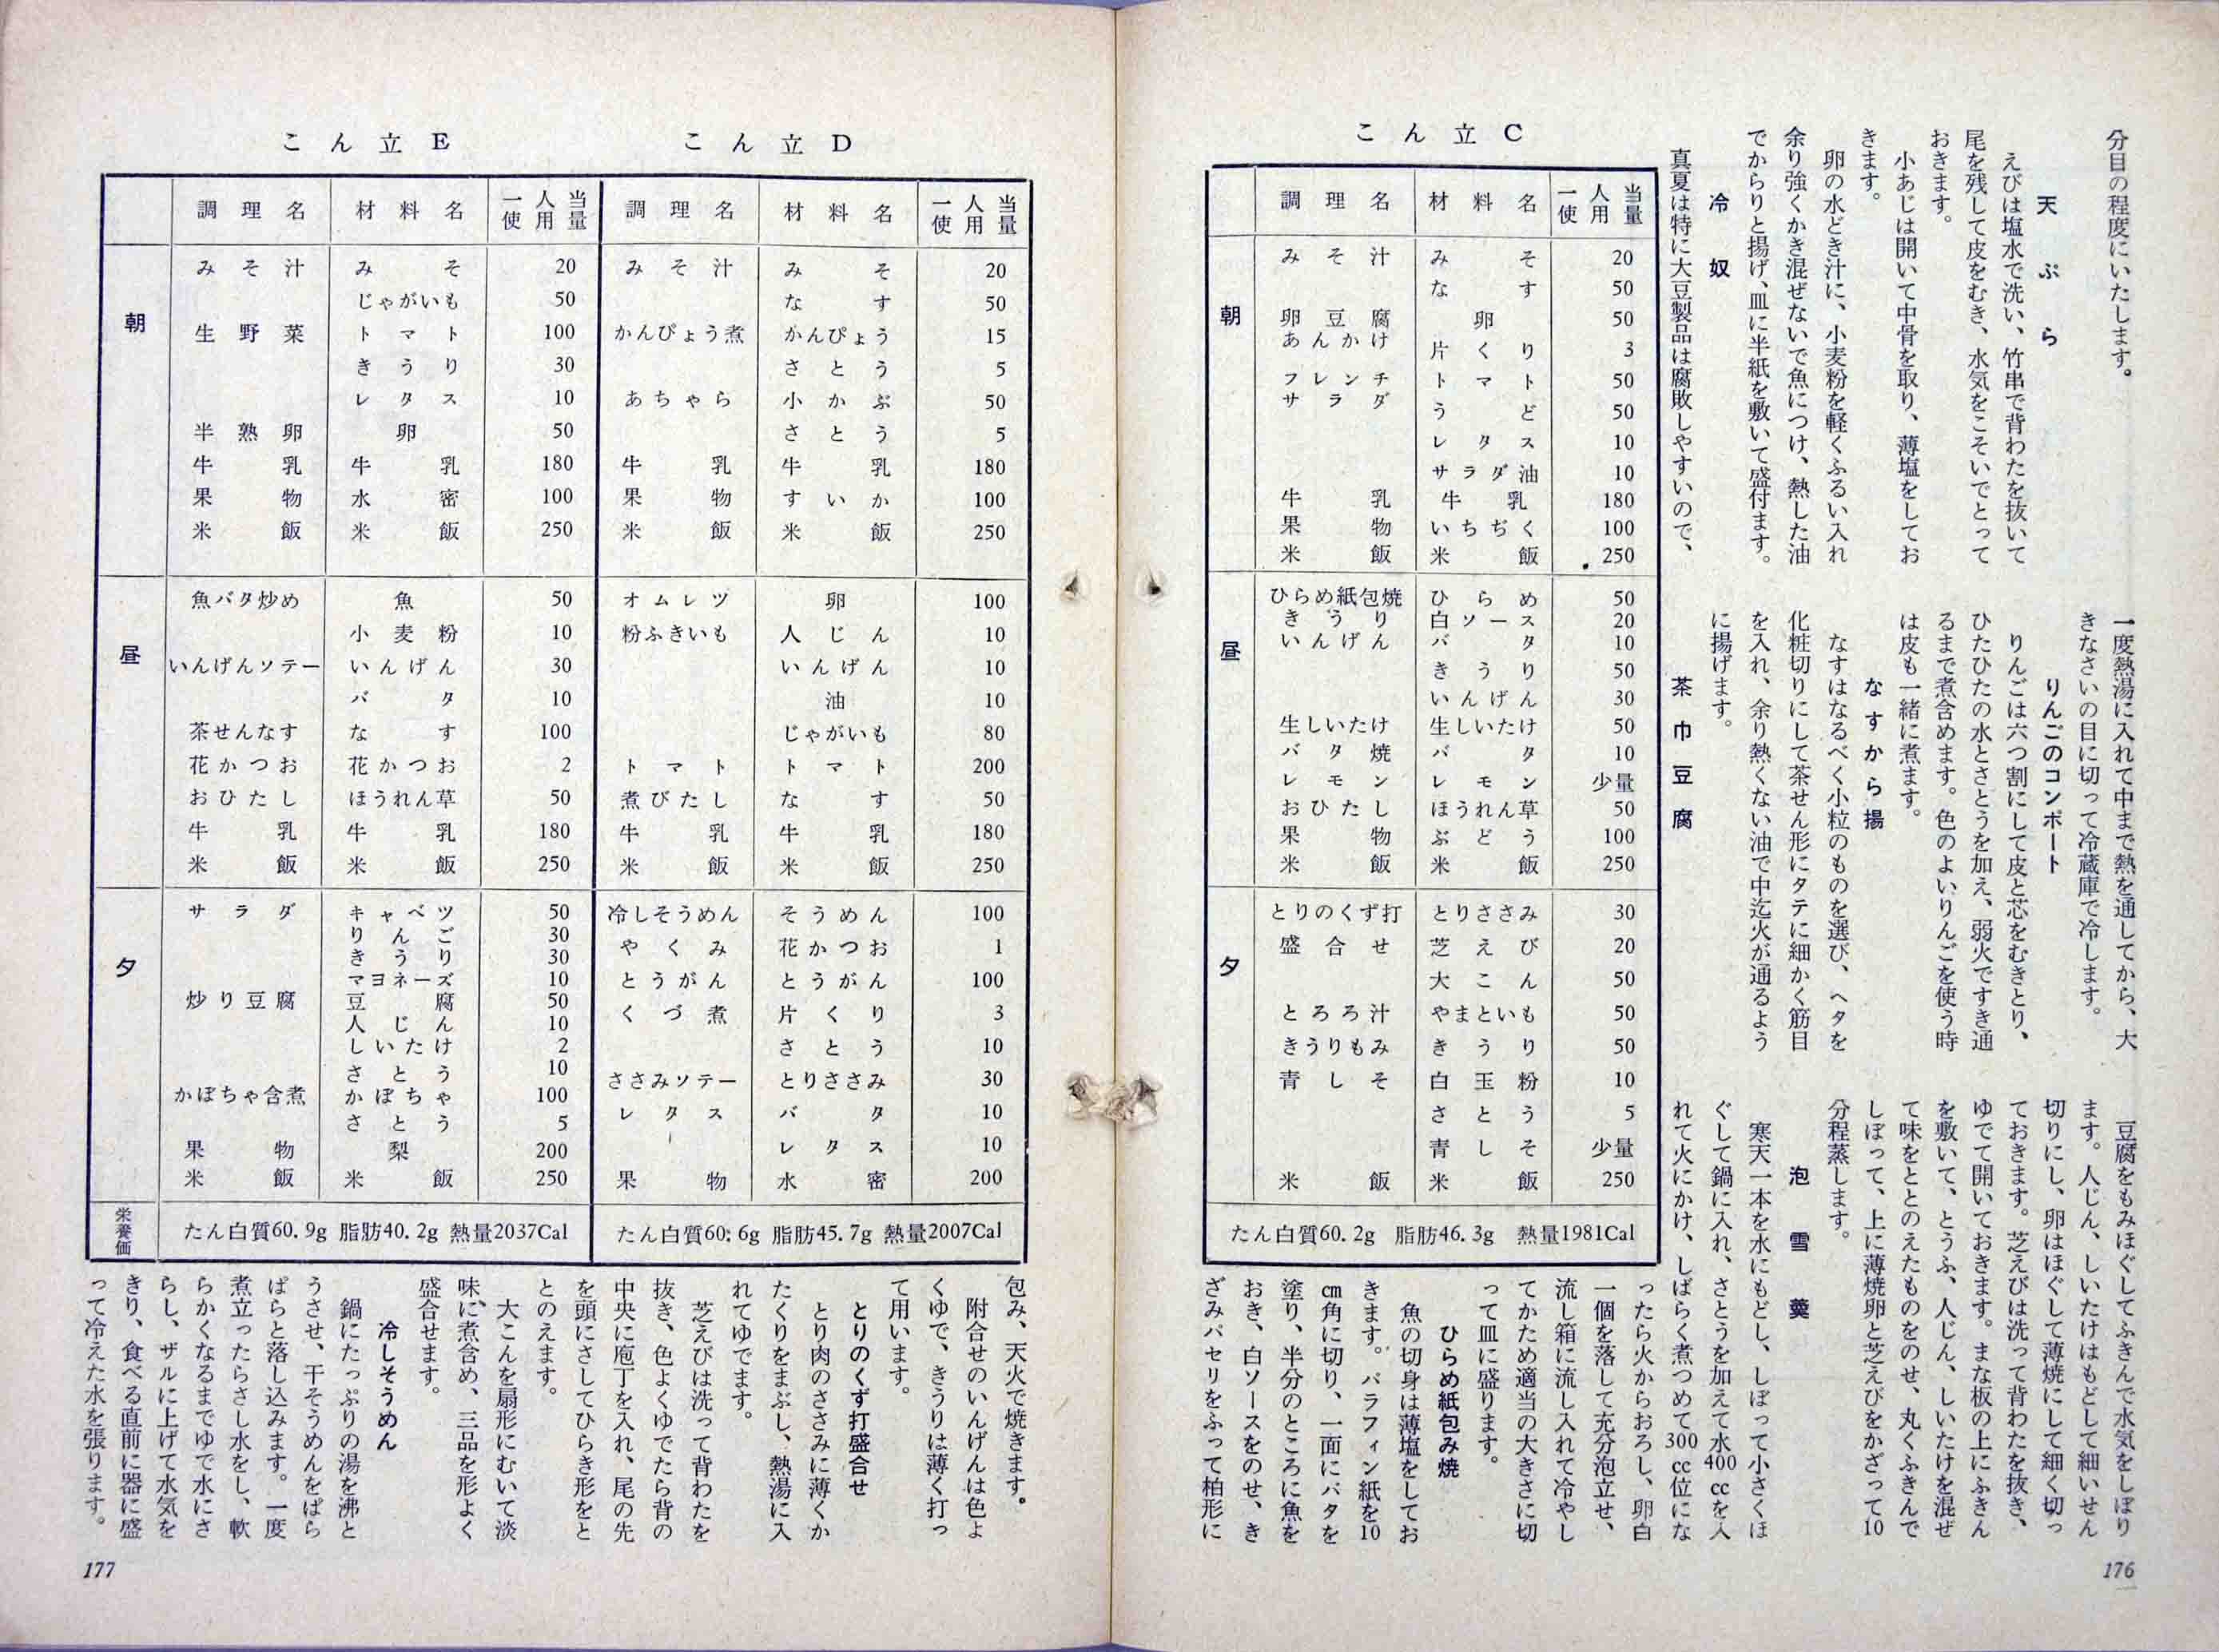 分目の程度にいたします。
天ぷら
えびは塩水で洗い、竹串で背わたを抜いて
尾を残して皮をむき、水気をこそいでとって
おきます。
小あじは開いて中骨を取り、薄塩をしてお
きます。
卵の水どき汁に、小麦粉を軽くふるい入れ
余り強くかき混ぜないで魚につけ、熱した油
でからりと揚げ、皿に半紙を敷いて盛付ます。
冷奴
真夏は特に大豆製品は腐敗しやすいので、
一度熱湯に入れて中まで熱を通してから、大
きなさいの目に切って冷蔵庫で冷します。
りんごのコンポート
りんごは六つ割にして皮と芯をむきとり、
ひたひたの水とさとうを加え、弱火ですき通
るまで煮含めます。色のよいりんごを使う時
は皮も一緒に煮ます。
なすから揚
なすはなるべく小粒のものを選び、ヘタを
化粧切りにして茶せん形にタテに細かく筋目
を入れ、余り熱くない油で中迄火が通るよう
に揚げます。
茶巾豆腐
豆腐をもみほぐしてふきんで水気をしぼり
ます。人じん、しいたけはもどして細いせん
切りにし、卵はほぐして薄焼にして細く切っ
ておきます。芝えびは洗って背わたを抜き、
ゆでて開いておきます。まな板の上にふきん
を敷いて、とうふ、人じん、しいたけを混ぜ
て味をととのえたものをのせ、丸くふきんで
しぼって、上に薄焼卵と芝えびをかざって10
分程蒸します。
泡雪羹
寒天一本を水にもどし、しぼって小さくほ
ぐして鍋に入れ、さとうを加えて水400ccを入
れて火にかけ、しばらく煮つめて300cc位にな
ったら火からおろし、卵白
一個を落して充分泡立せ、
流し箱に流し入れて冷やし
てかため適当の大きさに切
って皿に盛ります。
ひらめ紙包み焼
魚の切身は薄塩をしてお
きます。パラフィン紙を10
cm角に切り、一面にバタを
塗り、半分のところに魚を
おき、白ソースをのせ、き
ざみパセリをふって柏形に
こん立C
調理名 材料名 一人当使用量
朝
みそ汁 みそ 20
なす 50
卵豆腐 卵 50
あんかけ 片くり 3
フレンチ トマト 50
サラダ うど 50
レタス 10
サラダ油 10
牛乳 牛乳 180
果物 いちぢく 100
米飯 米飯 250
昼
ひらめ紙包焼 ひらめ 50
きうり 白ソース 20
いんげん バタ 10
きうり 50
いんげん 30
生しいたけ 生しいたけ 50
バタ焼 バタ 10
レモン レモン 少量
おひたし ほうれん草 50
果物 ぶどう 100
米飯 米飯 250
夕
とりのくず打 とりささみ 30
盛合せ 芝えび 20
大こん 50
とろろ汁 やまといも 50
きうりもみ きうり 50
青しそ 白玉粉 10
さとう 5
青しそ 少量
米飯 米飯 250
たん白質60.2g 脂肪46.3g 熱量1981Cal
176
こん立D
調理名 材料名 一人当使用量
みそ汁 みそ 20
なす 50
かんぴょう煮 かんぴょう 15
さとう 5
あちゃら 小かぶ 50
さとう 5
牛乳 牛乳 180
果物 すいか 100
米飯 米飯 250
オムレツ 卵 100
粉ふきいも 人じん 10
いんげん 10
油 10
じゃがいも 80
トマト トマト 200
煮びたし なす 50
牛乳 牛乳 180
米飯 米飯 250
冷しそうめん そうめん 100
やくみ 花かつお 1
とうがん とうがん 100
くづ煮 片くり 3
さとう 10
ささみソテー とりささみ 30
レタス バタ 10
レタス 10
果物 水密 200
たん白質60.6g 脂肪45.7g 熱量2007Cal
こん立E
調理名 材料名 一人当使用量
朝
みそ汁 みそ 20
じゃがいも 50
生野菜 トマト 100
きうり 30
レタス 10
半熟卵 卵 50
牛乳 牛乳 180
果物 水密 100
米飯 米飯 250
昼
魚バタ炒め 魚 50
小麦粉 10
いんげんソテー いんげん 30
バタ 10
茶せんなす なす 100
花かつお 花かつお 2
おひたし ほうれん草 50
牛乳 牛乳 180
米飯 米飯 250
夕
サラダ キャベツ 50
りんご 30
きうり 30
マヨネーズ 10
炒り豆腐 豆腐 50
人じん 10
しいたけ 2
さとう 10
かぼちゃ含煮 かぼちゃ 100
さとう 5
果物 梨 200
米飯 米飯 250
栄養価 たん白質60.9g 脂肪40.2g 熱量2037Cal
包み、天火で焼きます。
附合せのいんげんは色よ
くゆで、きうりは薄く打っ
て用います。
とりのくず打盛合せ
とり肉のささみに薄くか
たくりをまぶし、熱湯に入
れてゆでます。
芝えびは洗って背わたを
抜き、色よくゆでたら背の
中央に庖丁を入れ、尾の先
を頭にさしてひらき形をと
とのえます。
大こんを扇形にむいて淡
味に煮含め、三品を形よく
盛合せます。
冷しそうめん
鍋にたっぷりの湯を沸と
うさせ、干そうめんをぱら
ぱらと落し込みます。一度
煮立ったらさし水をし、軟
らかくなるまでゆで水にさ
らし、ザルに上げて水気を
きり、食べる直前に器に盛
って冷えた水を張ります。
177